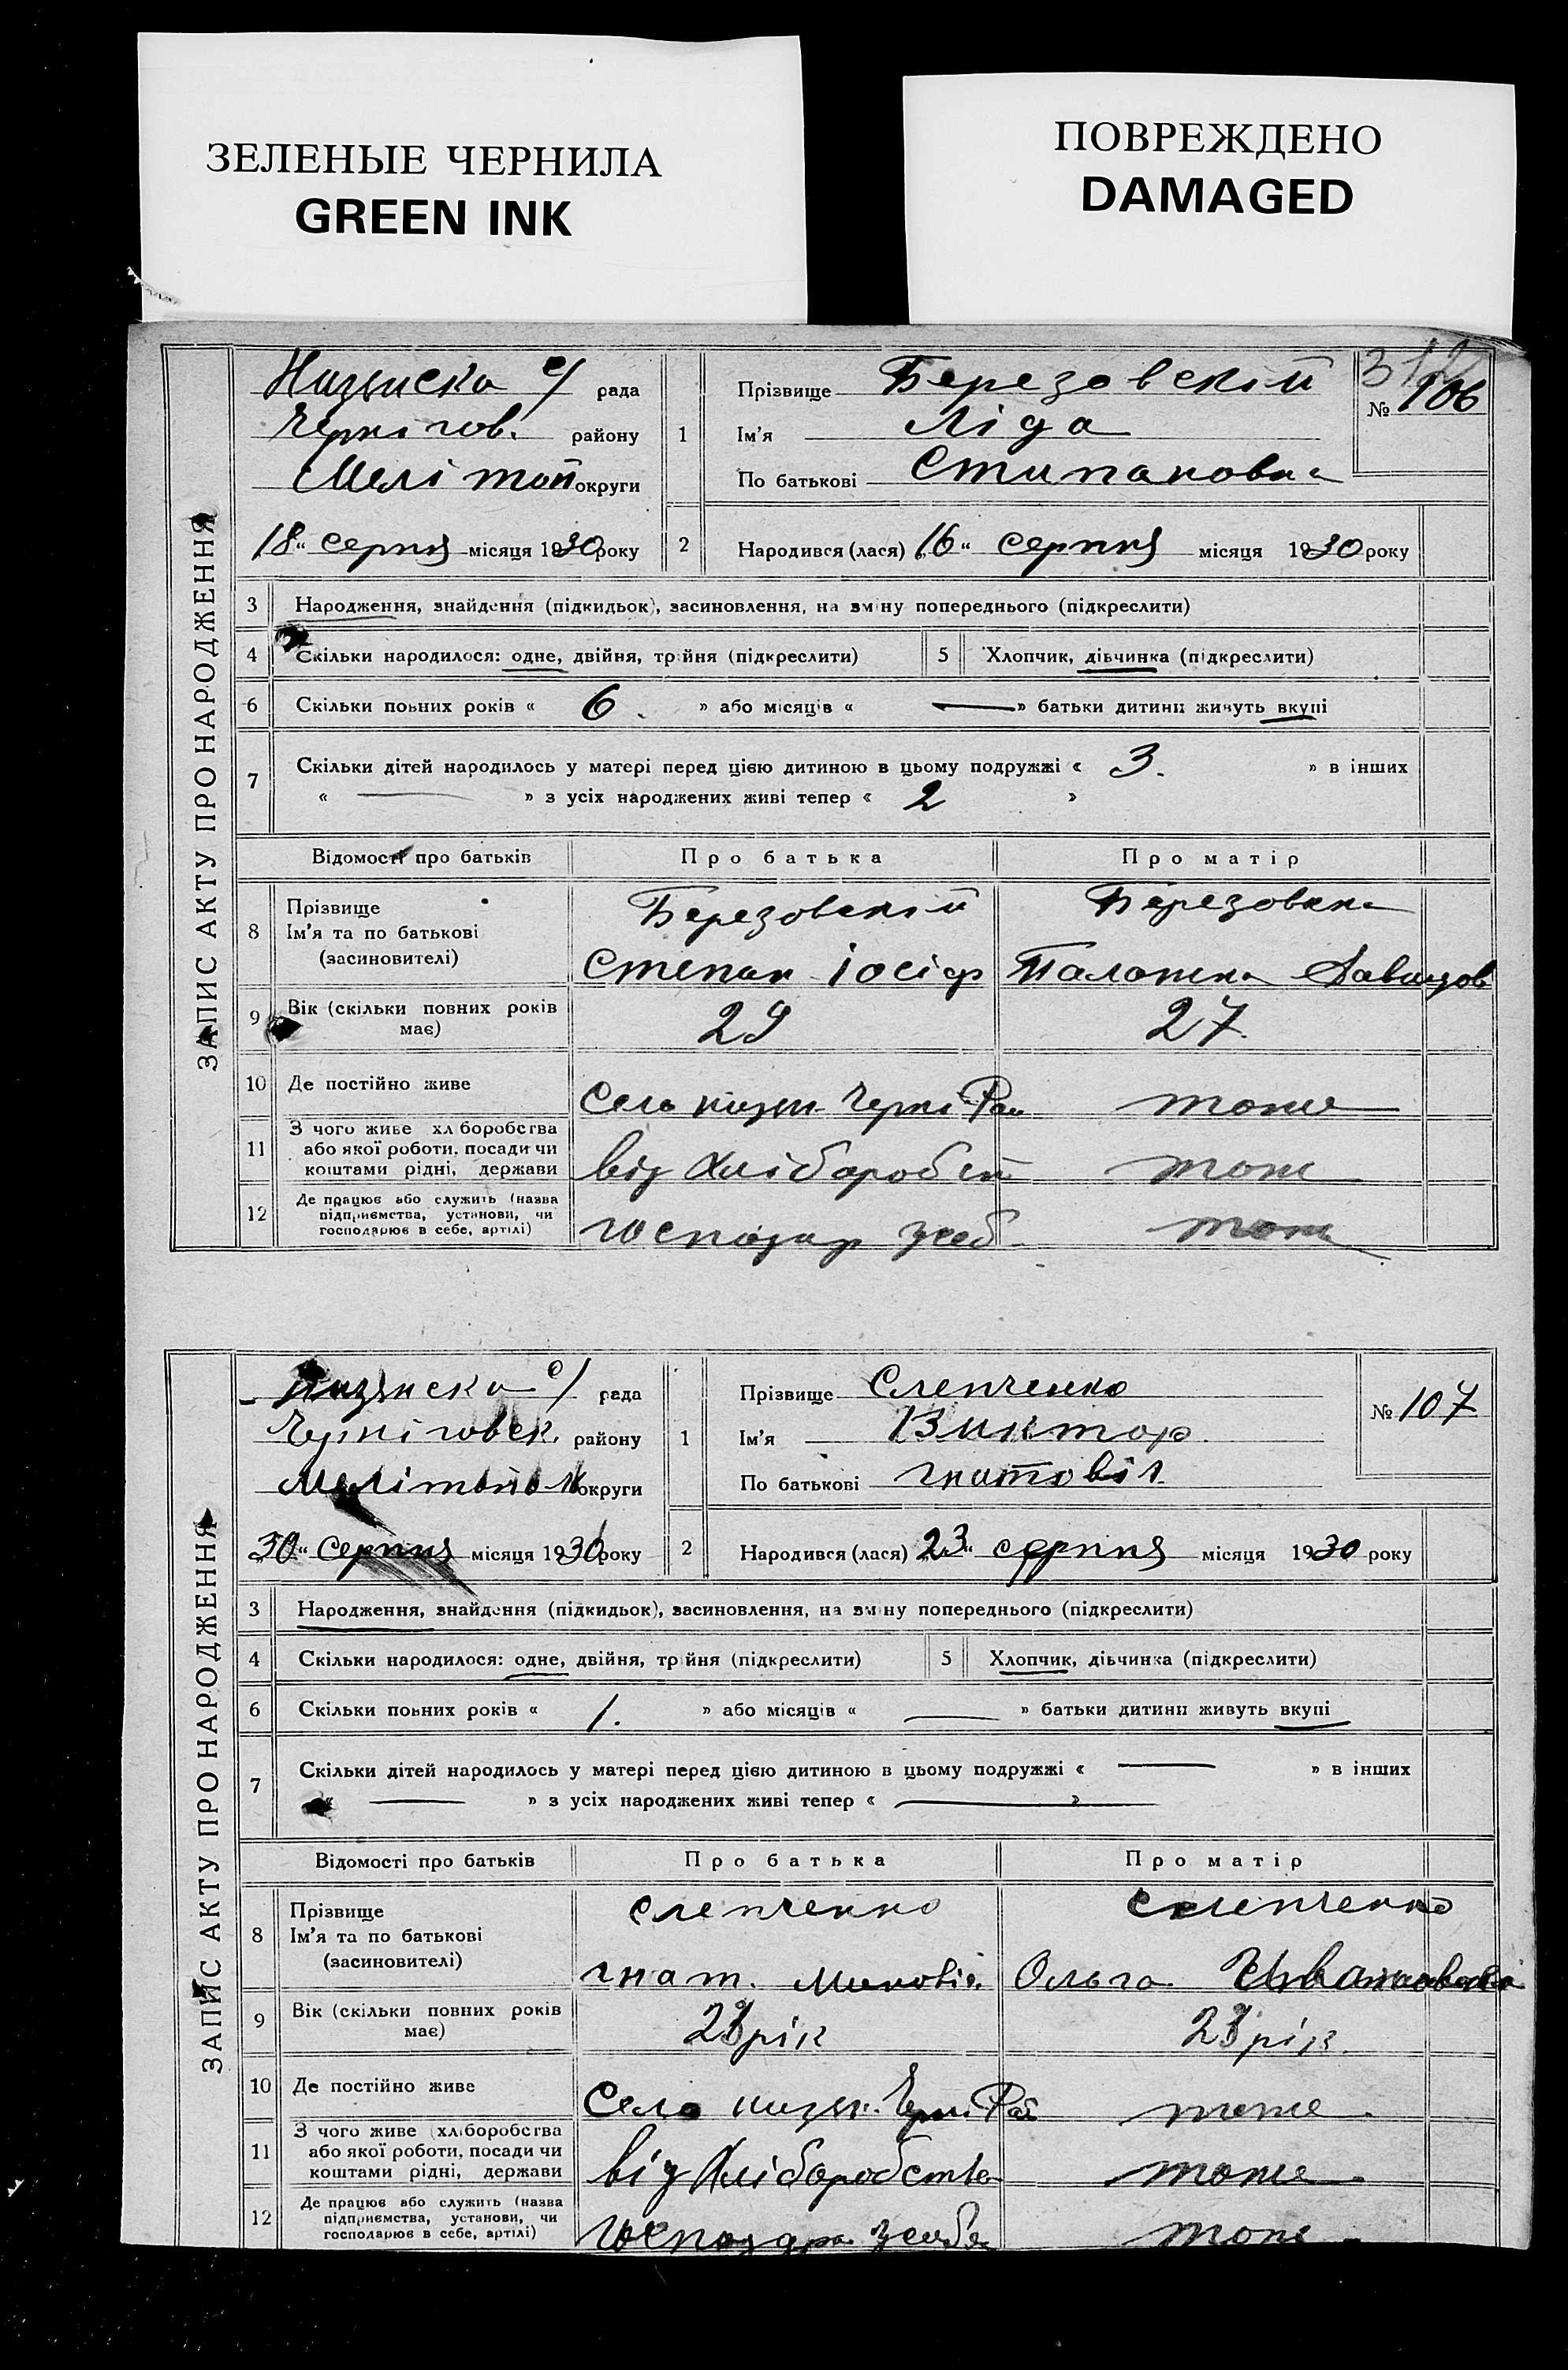 ЗЕЛЕНЫЕ ЧЕРНИЛА
GREEN INK
ПОВРЕЖДЕНО
DAMAGED
312
ЗАПИС АКТУ ПРО НАРОДЖЕННЯ
Низянска с/ рада
Чернігов. району
Мелітоп округи
18 „ серпня місяця 1930 року
1
Прізвище Березовскій
Ім'я Ліда
По батькові Стипановна
№ 106
2
Народився (лася) „16 “ серпня місяця 1930 року
3 Народження, знайдення (підкидьок), засиновлення, на зміну попереднього (підкреслити)
4 Скільки народилося: одне, двійня, трійня (підкреслити) 5 Хлопчик, дівчинка (підкреслити)
6 Скільки повних років « 6. » або місяців « — » батьки дитини живуть вкупі
7 Скільки дітей народилось у матері перед цією дитиною в цьому подружжі « 3. » в інших
« — » з усіх народжених живі тепер « 2 »
Відомості про батьків Про батька Про матір
8 Прізвище Ім'я та по батькові (засиновителі)
Березовскій Березовска
Степан Іосіф Палажка Давидов
9 Вік (скільки повних років має) 29 27
10 Де постійно живе Село низян. Черні Рай тоже
11 З чого живе хліборобства або якої роботи, посади чи коштами рідні, держави від Хлібороб тоже
12 Де працює або служить (назва підприємства, установи, чи господарює в себе, артілі) господар тоже
ЗАПИС АКТУ ПРО НАРОДЖЕННЯ
Низянска с/ рада
Черніговск. району
Мелітопол округи
30 “ серпня місяця 1930 року
1
Прізвище Слепченко
Ім'я Виктор
По батькові гнатовіч
№ 107
2
Народився (лася) „23 “ серпня місяця 1930 року
3 Народження, знайдення (підкидьок), засиновлення, на зміну попереднього (підкреслити)
4 Скільки народилося: одне, двійня, трійня (підкреслити) 5 Хлопчик, дівчинка (підкреслити)
6 Скільки повних років « 1. » або місяців « — » батьки дитини живуть вкупі
7 Скільки дітей народилось у матері перед цією дитиною в цьому подружжі « — » в інших
« — » з усіх народжених живі тепер « — »
Відомості про батьків Про батька Про матір
8 Прізвище Ім'я та по батькові (засиновителі)
Слепченко Слепченко
гнат. Ольга
9 Вік (скільки повних років має) рік рік
10 Де постійно живе Село низян. Черн. Рай тоже
11 З чого живе (хліборобства або якої роботи, посади чи коштами рідні, держави від Хліборобства тоже
12 Де працює або служить (назва підприємства, установи, чи господарює в себе, артілі) господар тоже